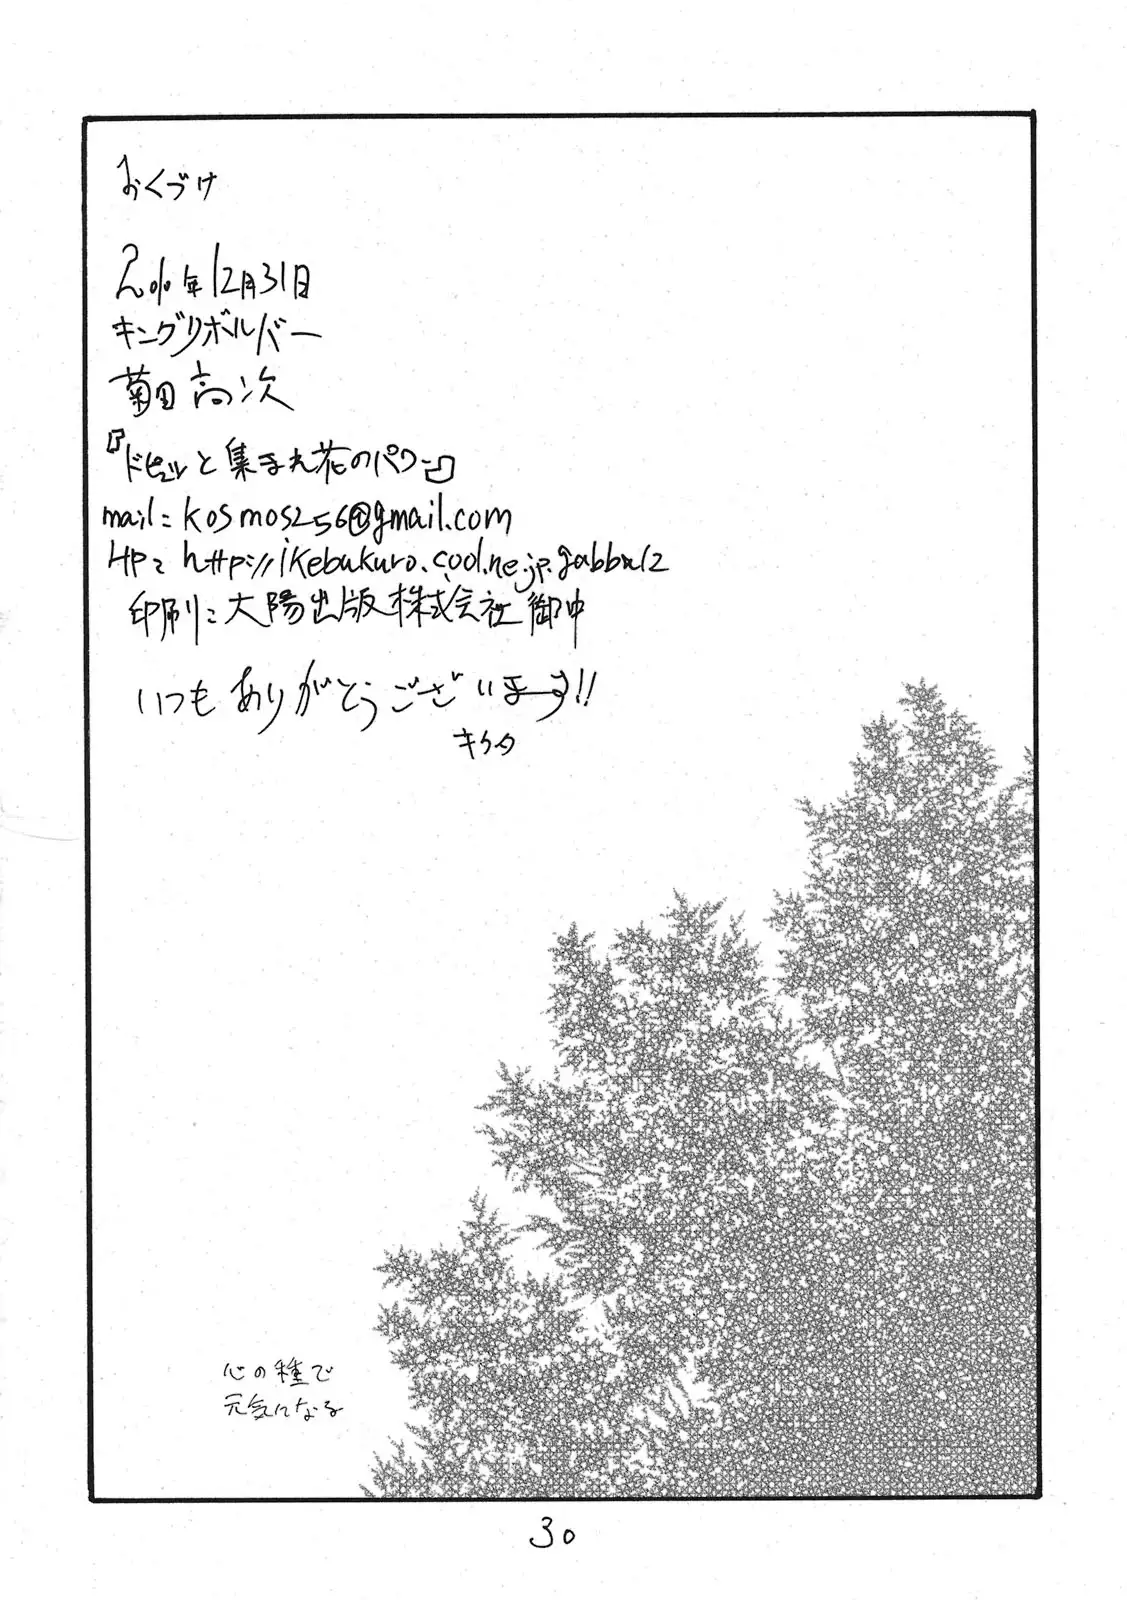 おくづけ
2010年12月31日
キングリボルバー
菊田高次
『ドピュッと集まれ花のパワー』
mail: kosmos256@gmail.com
HP: http://ikebukuro.cool.ne.jp.gabba12
印刷: 大陽出版株式会社御中
いつもありがとうございまーす!!
キクタ
心の種で
元気になる
30